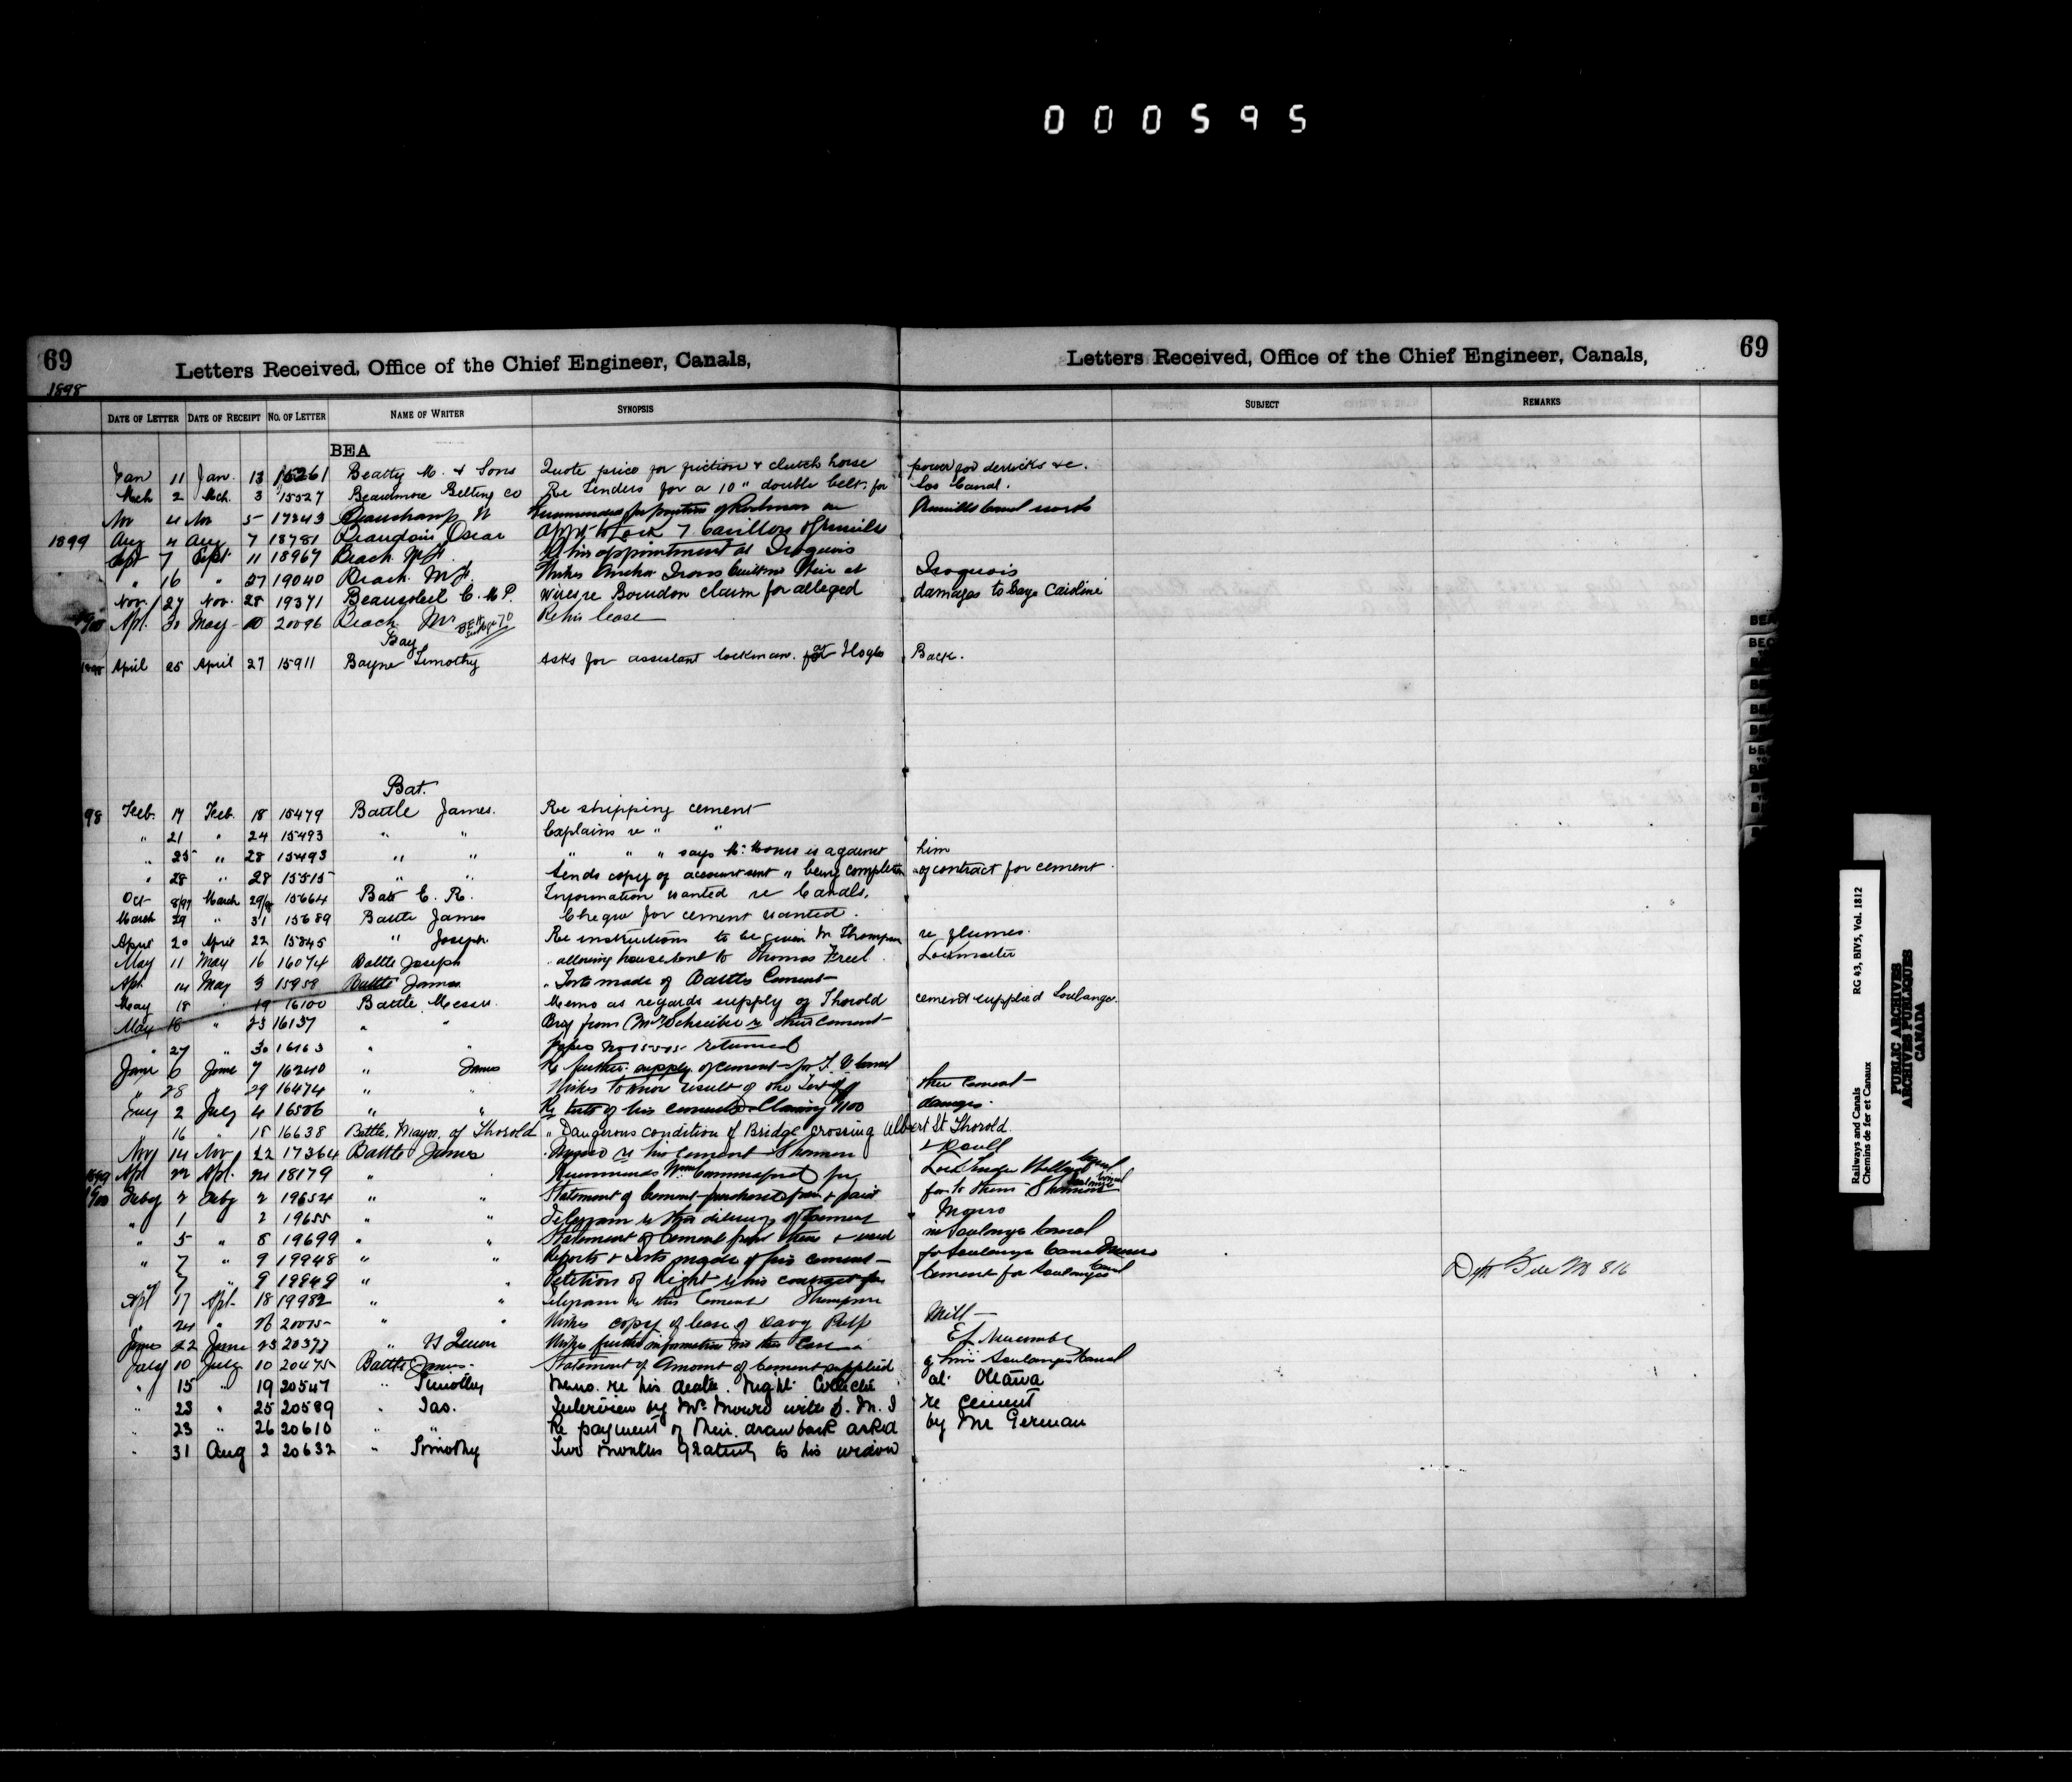 000595
69 Letters Received, Office of the Chief Engineer, Canals,
Letters Received, Office of the Chief Engineer, Canals, 69
1898
DATE OF LETTER DATE OF RECEIPT NO. OF LETTER NAME OF WRITER SYNOPSIS SUBJECT REMARKS
BEA
Jan 11 Jan. 13 15261 Beatty M. & Sons Quote price for friction & clutch horse power for derricks &c.
Mch 2 Mch. 3 15527 Beardmore Belting Co Re Tenders for a 10" double belt. for Sou Canal.
Nov 4 Nov 5 17343 Beauchamp
1899 Aug 4 Aug 7 18781 Beaudoin Oscar Lock 7 Carillon
Sept 7 Sept 11 18967 Beach Re his appointment at Iroquois
" 16 " 27 19040 Beach Wishes Iroquois
Nov. 27 Nov. 28 19371 Beausoleil C. M.P. wires re Bourdon claim for alleged damages to barge Caroline
Apl. 30 May 10 20096 Beach Re his lease
Bay
April 25 April 27 15911 Bayne Timothy Asks for assistant lockman. at Hogs Back.
Bat.
98 Feb. 17 Feb. 18 15479 Battle James. Re shipping cement
" 21 " 24 15493 " " Explains re " "
" 25 " 28 15493 " " " " " says Mr. is against him
" 28 " 28 15515 " " Sends copy of account sent " being completion of contract for cement
Oct 8/97 March 29/98 15664 Bate C. R. Information wanted re Canals.
March 29 " 31 15689 Battle James Cheque for cement wanted.
April 20 April 22 15845 " Joseph. Re instructions to be given Mr Thompson re flumes.
May 11 May 16 16074 Battle Joseph " allowing house rent to Thomas Freel Lockmaster
Apl. 14 May 3 15958 Battle James " Tests made of Battles Cement
May 18 " 19 16100 Battle Messrs. Memo as regards supply of Thorold cement supplied Soulanges
May 18 " 23 16137 " " from Mr Schreiber re their cement
" 27 " 30 16163 " " Papers No 15515 returned
June 6 June 7 16240 " James Re further supply of cement for Canal
" 28 " 29 16474 " " Wishes to know result of the Test of their cement
July 2 July 4 16506 " " Re tests of his cement & Claiming $1100 damages.
" 16 " 18 16638 Battle, Mayor, of Thorold " Dangerous condition of Bridge crossing Albert St Thorold.
Nov 14 Nov 22 17364 Battle James Munro re his cement
1899 Apl 22 Apl. 24 18179 " " Recommends for Lock Tender Welland Canal
1900 Feby 2 Feby 2 19654 " " Statement of Cement purchased from & paid for to them
" 1 " 2 19655 " " Telegram re their delivery of Cement Munro
" 5 " 8 19699 " " Statement of Cement from them & used in Soulanges Canal
" 7 " 9 19948 " " Reports & tests made of his cement for Soulanges Canal Munro
" 7 " 9 19949 " " Petition of Right re his contract for Cement for Soulanges Canal Dept File No 816
Apl 17 Apl. 18 19982 " " Telegram re this Cement Thompson
" 24 " 26 20015 " " Wishes copy of lease of Davy Pulp Mill
June 22 June 23 20377 " vs Queen Wishes further information in this case E. L. Newcombe
July 10 July 10 20475 Battle James. Statement of Amount of Cement supplied Soulanges Canal
" 15 " 19 20547 " Timothy Memo. re his death. at Ottawa
" 23 " 25 20589 " Jas. Interview by Mr. Munro with D. M. J re cement
" 23 " 26 20610 " " Re payment of their drawback asked by Mr German
" 31 Aug 2 20632 " Timothy Two months gratuity to his widow
Railways and Canals
Chemins de fer et Canaux
RG 43, BIV5, Vol. 1812
PUBLIC ARCHIVES
ARCHIVES PUBLIQUES
CANADA